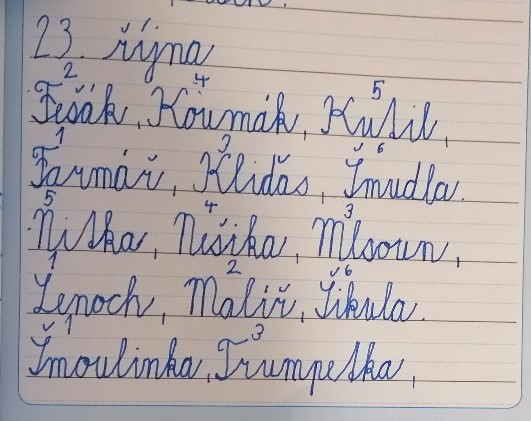 23. října
2 4 5
Fešák, Koumák, Kutil,
1 3 6
Farmář, Kliďas, Šmudla.
5 4 3
Nitka, Nešika, Mlsoun,
1 2 6
Lenoch, Malíř, Šikula.
1 3
Šmoulinka, Trumpetka,